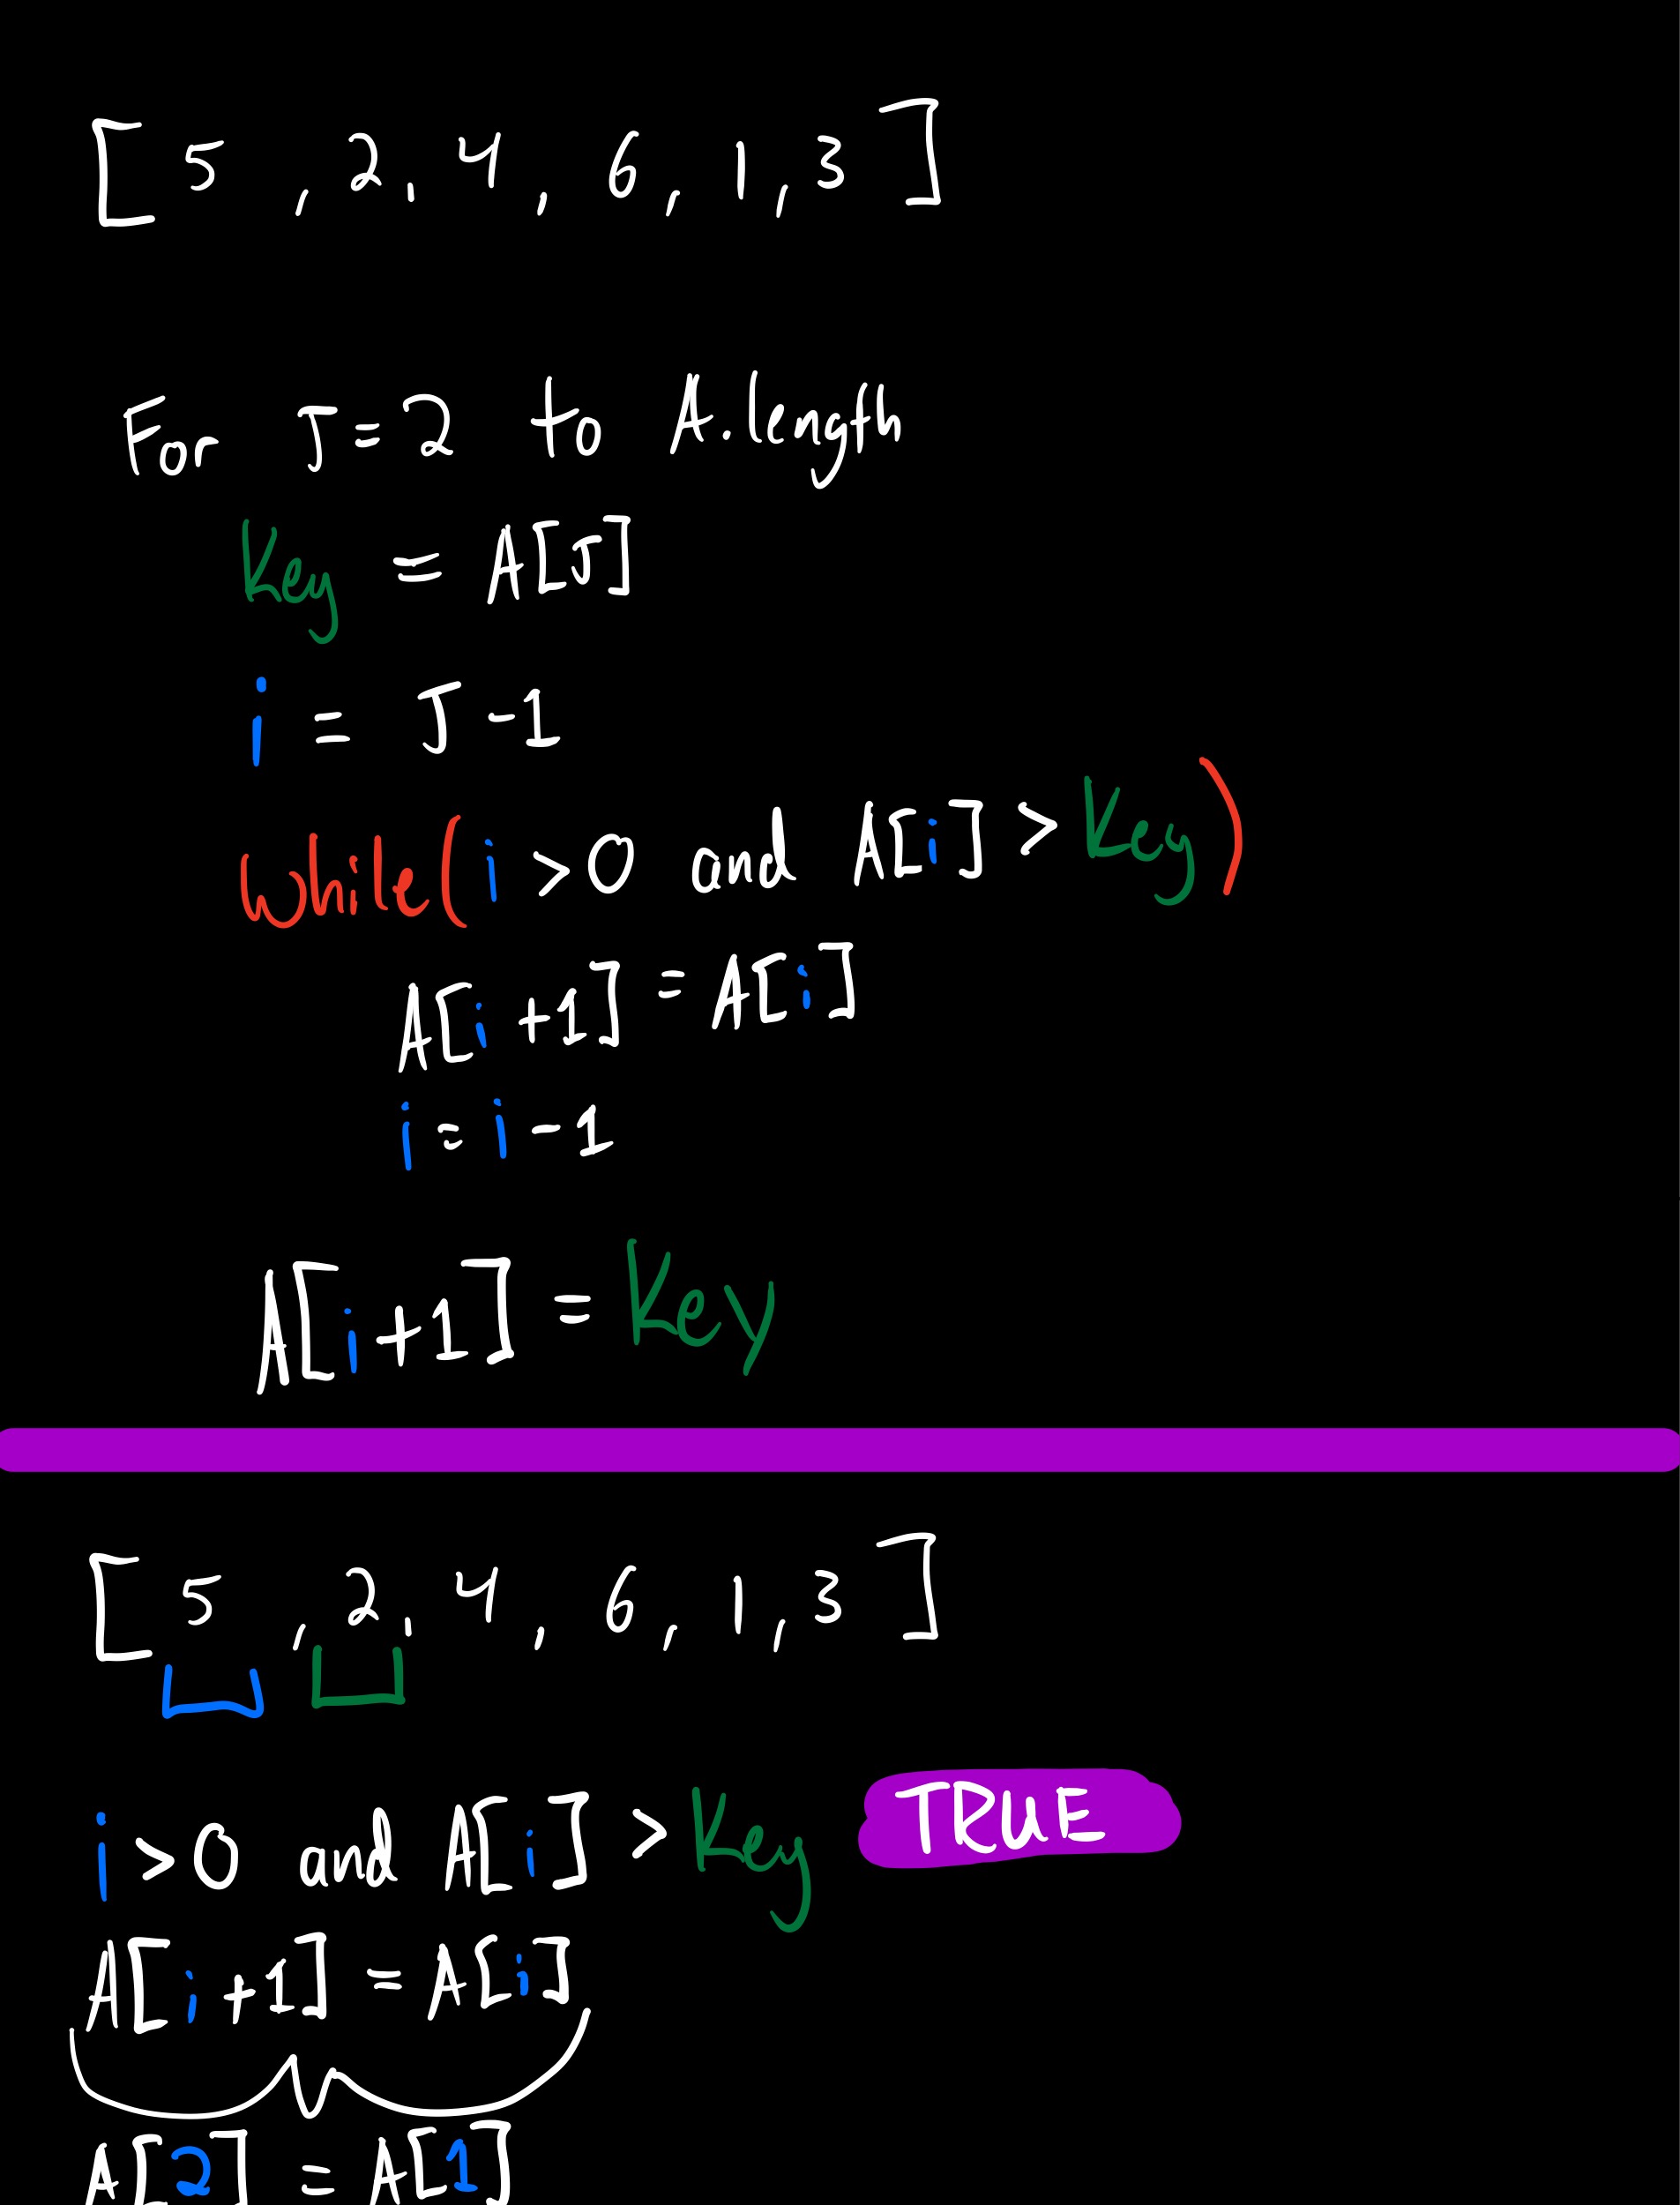 [ 5 , 2, 4, 6, 1, 3 ]
For J=2 to A.length
Key = A[J]
i = J-1
while(i >0 and A[i] > Key)
A[i+1] = A[i]
i = i-1
A[i+1] = Key
[ 5 , 2, 4, 6, 1, 3 ]
i >0 and A[i] > Key TRUE
A[i+1] = A[i]
A[2] = A[1]